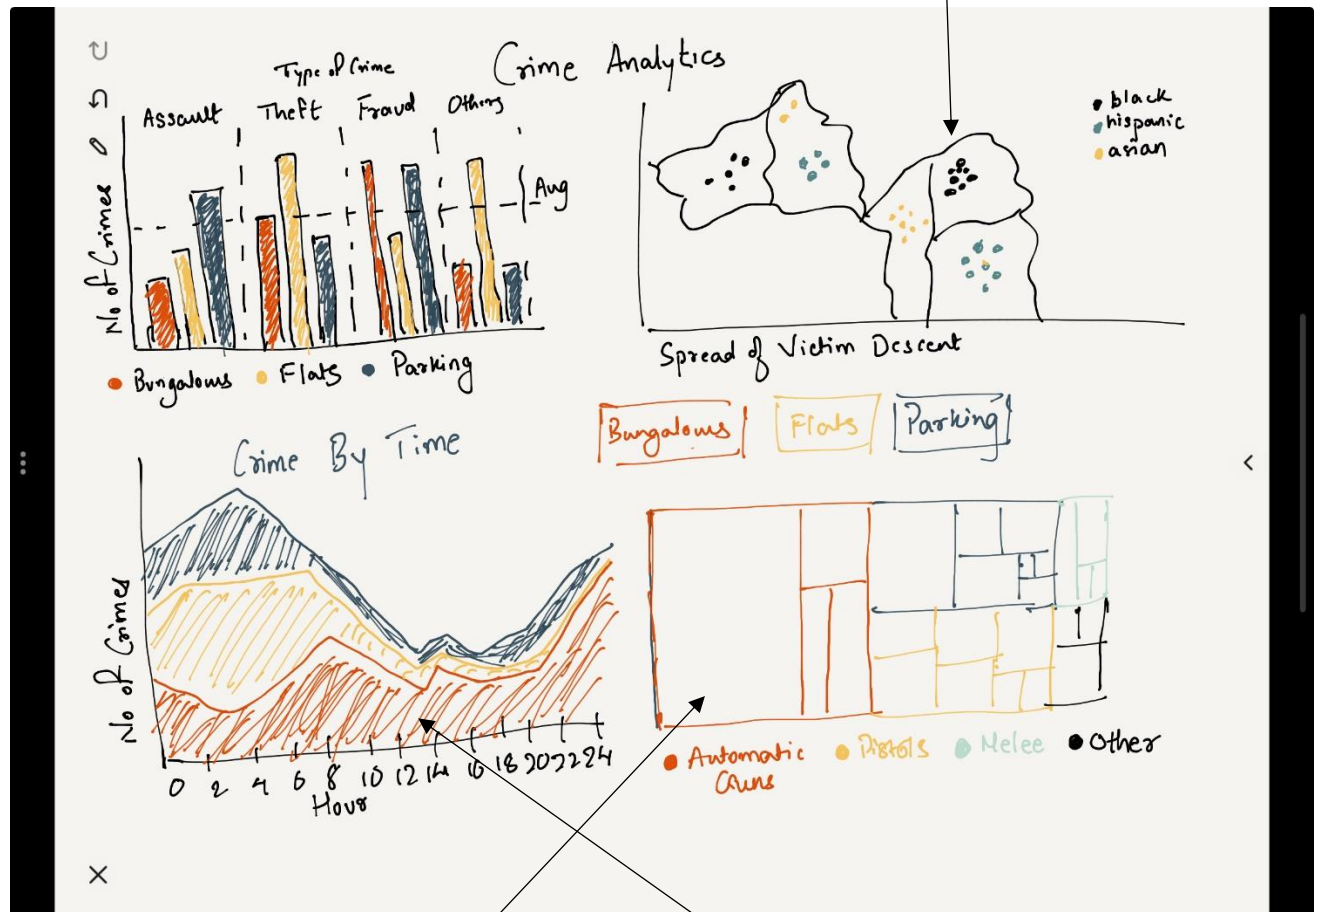 Crime Analytics
Type of Crime
Assault Theft Fraud Others
No of Crimes
Avg
Bungalows Flats Parking
black
hispanic
asian
Spread of Victim Descent
Bungalows Flats Parking
Crime By Time
No of Crimes
0 2 4 6 8 10 12 14 16 18 20 22 24
Hour
Automatic Guns Pistols Melee Other